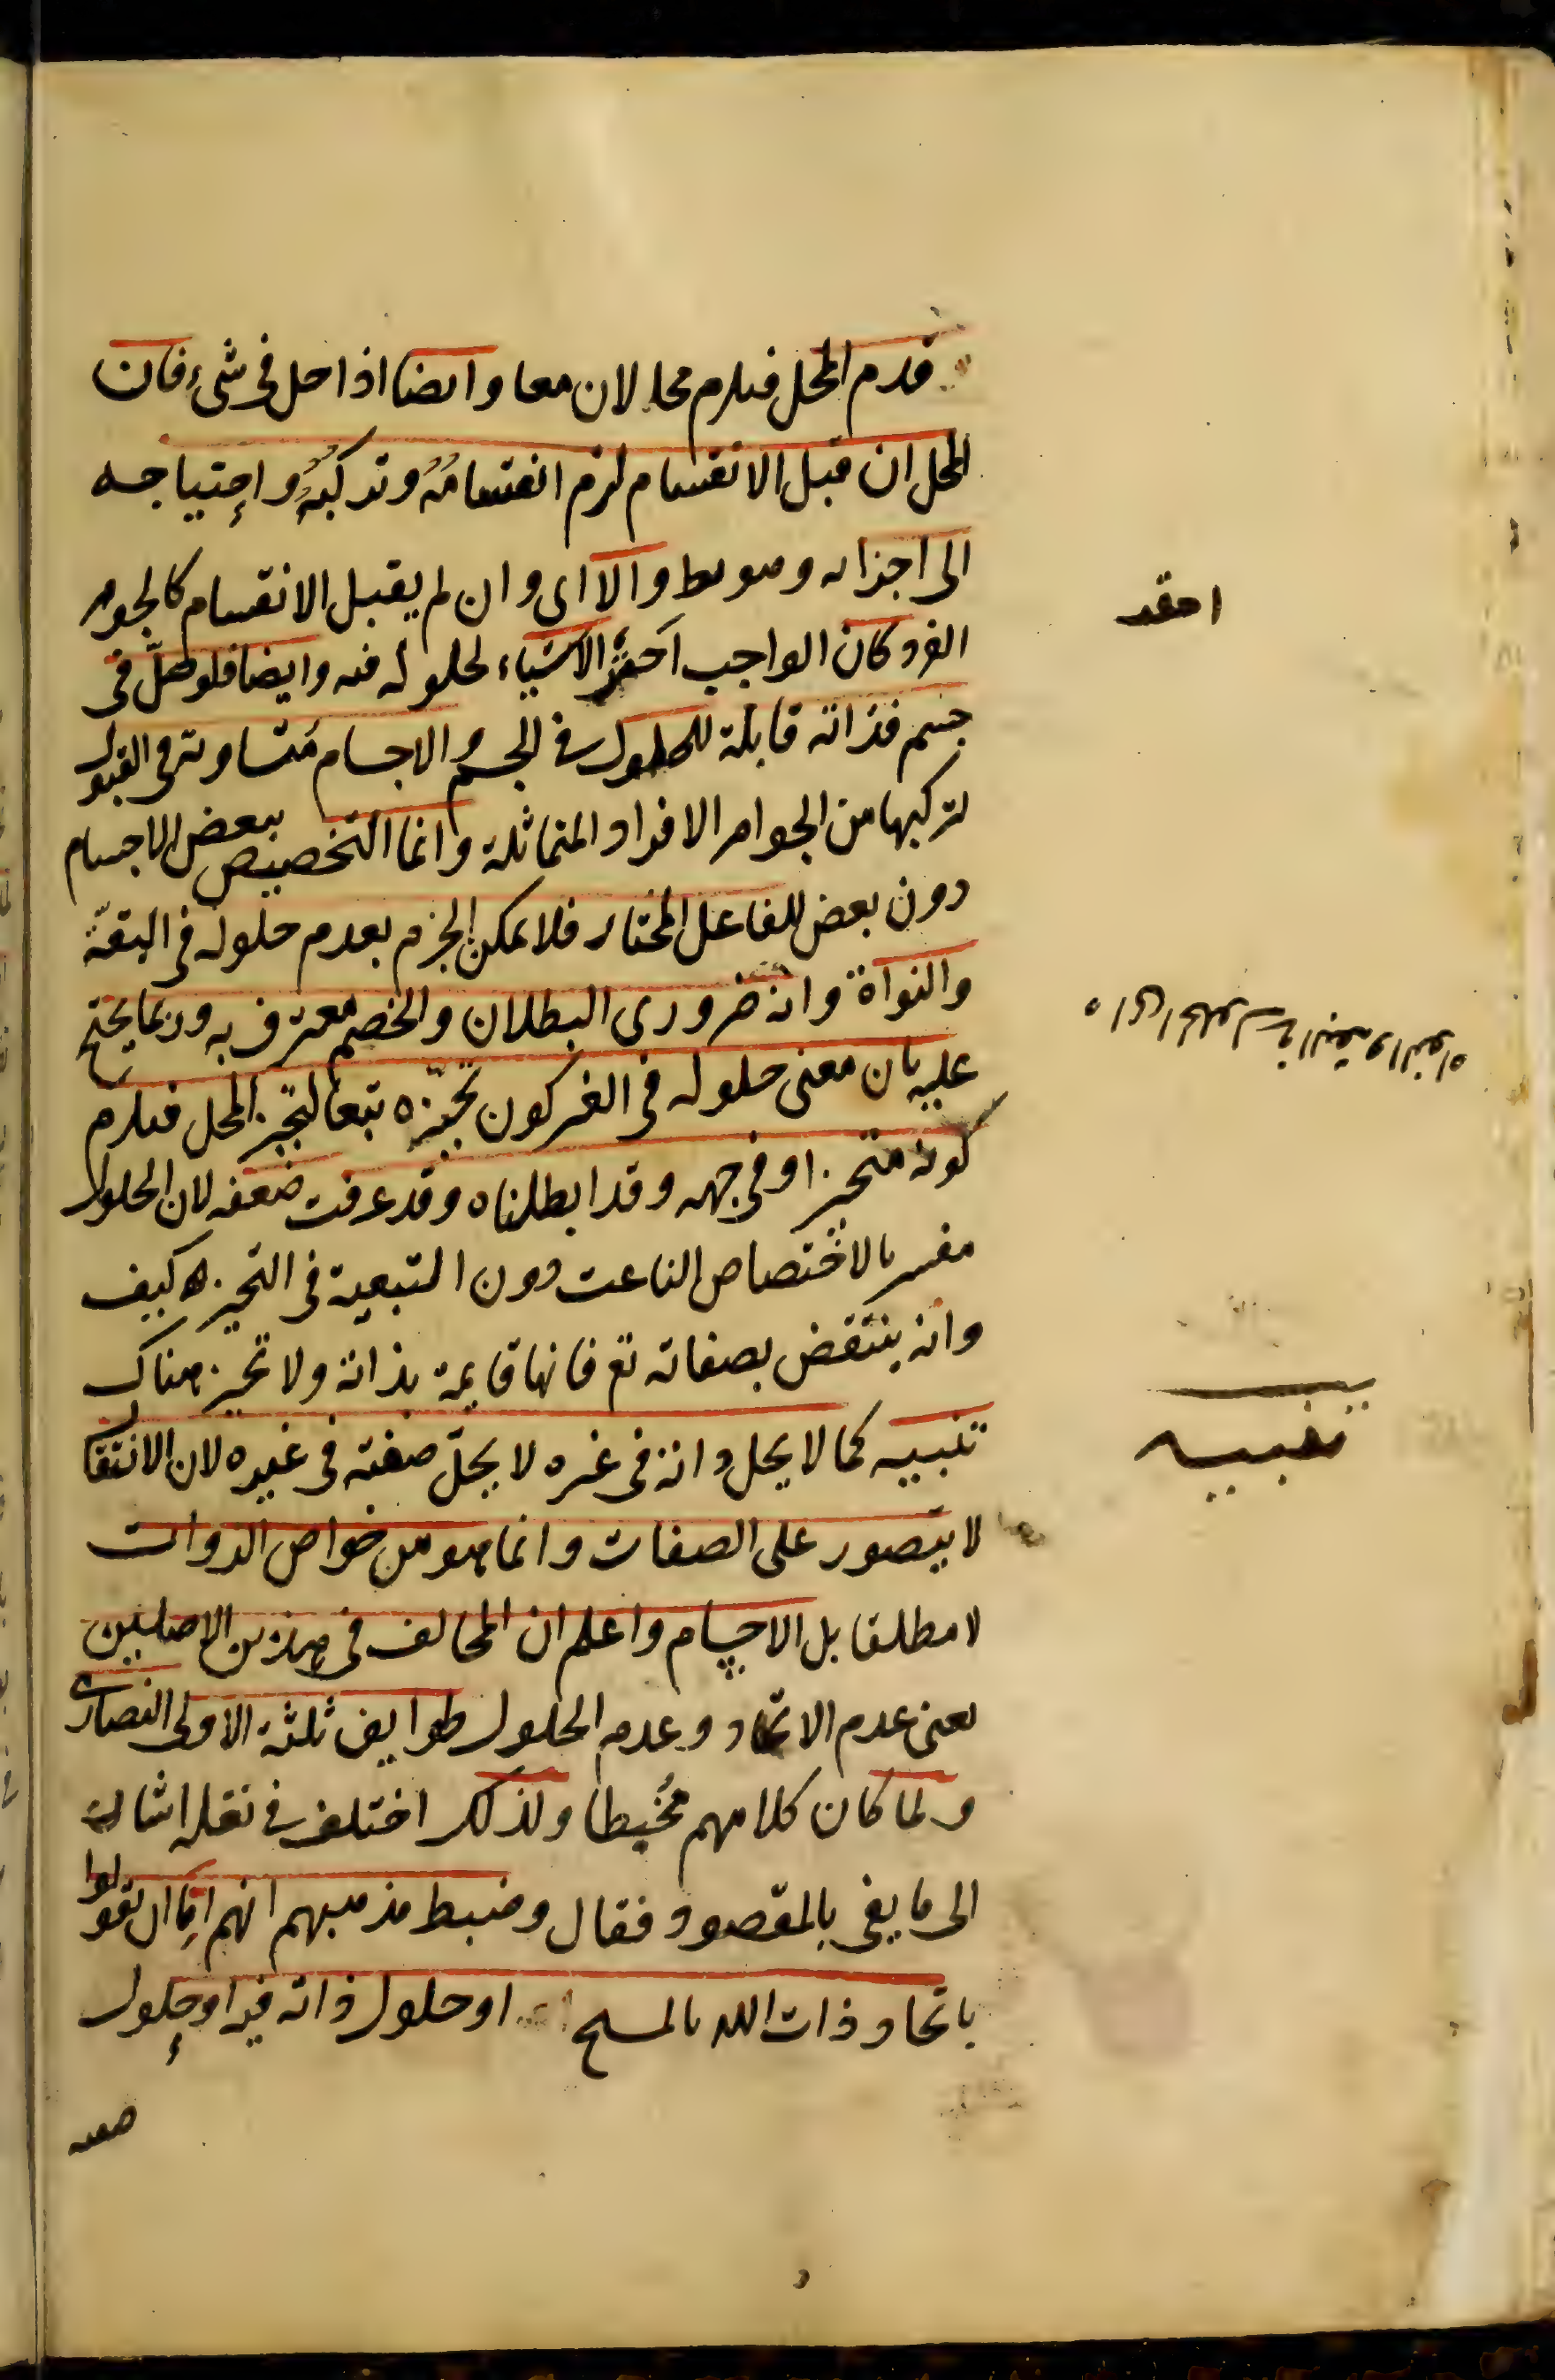 قدم المحل فيلزم محالان معا وايضا اذا حل فى شىء فان
المحل ان قبل الانقسام لزم انقسامُهُ وتركبُهُ واحتياجه
الى اجزائه وهو بط والا اى وان لم يقبل الانقسام كالجوهر
الفرد كان الواجب احقر الاشياء لحلوله فيه وايضا فلو حلّ فى
جسم فذاته قابلة للحلول فى الجسم والاجسام متساوية فى القبول
لتركبها من الجواهر الافراد المتماثلة وانما التخصيص ببعض الاجسام
دون بعض للفاعل المختار فلا يمكن الجزم بعدم حلوله فى البقّة
والنواة وانه ضرورى البطلان والخصم معترف به وربما يحتج
عليه بان معنى حلوله فى الغير كون تحيّزه تبعا لتحيز المحل فيلزم
كونه متحيزا وفى جهه وقد ابطلناه وقد عرفت ضعفه لان الحلول
مفسر بالاختصاص الناعت دون التبعية فى التحيز كيف
وانه ينتقض بصفاته تع فانها قايمة بذاته ولا تحيز هناك
تنبيه كما لا يحل ذاته فى غيره لا يحلّ صفته فى غيره لان الانتقا
لا يتصور على الصفات وانما هو من خواص الذوات
لا مطلقا بل الاجسام واعلم ان المخالف فى هذين الاصلين
يعنى عدم الاتحاد وعدم الحلول طوايف ثلثة الاولى النصارى
ولما كان كلامهم مُخبطا ولذلك اختلف فى نقله اشار
الى ما يفى بالمقصود فقال وضبط مذهبهم انهم اِمّا ان يقولوا
باتحاد ذات الله بالمسيح او حلول ذاته فيه او حلول
صفته
احقر
اى الحلول فى البقه والنواة
تنبيه